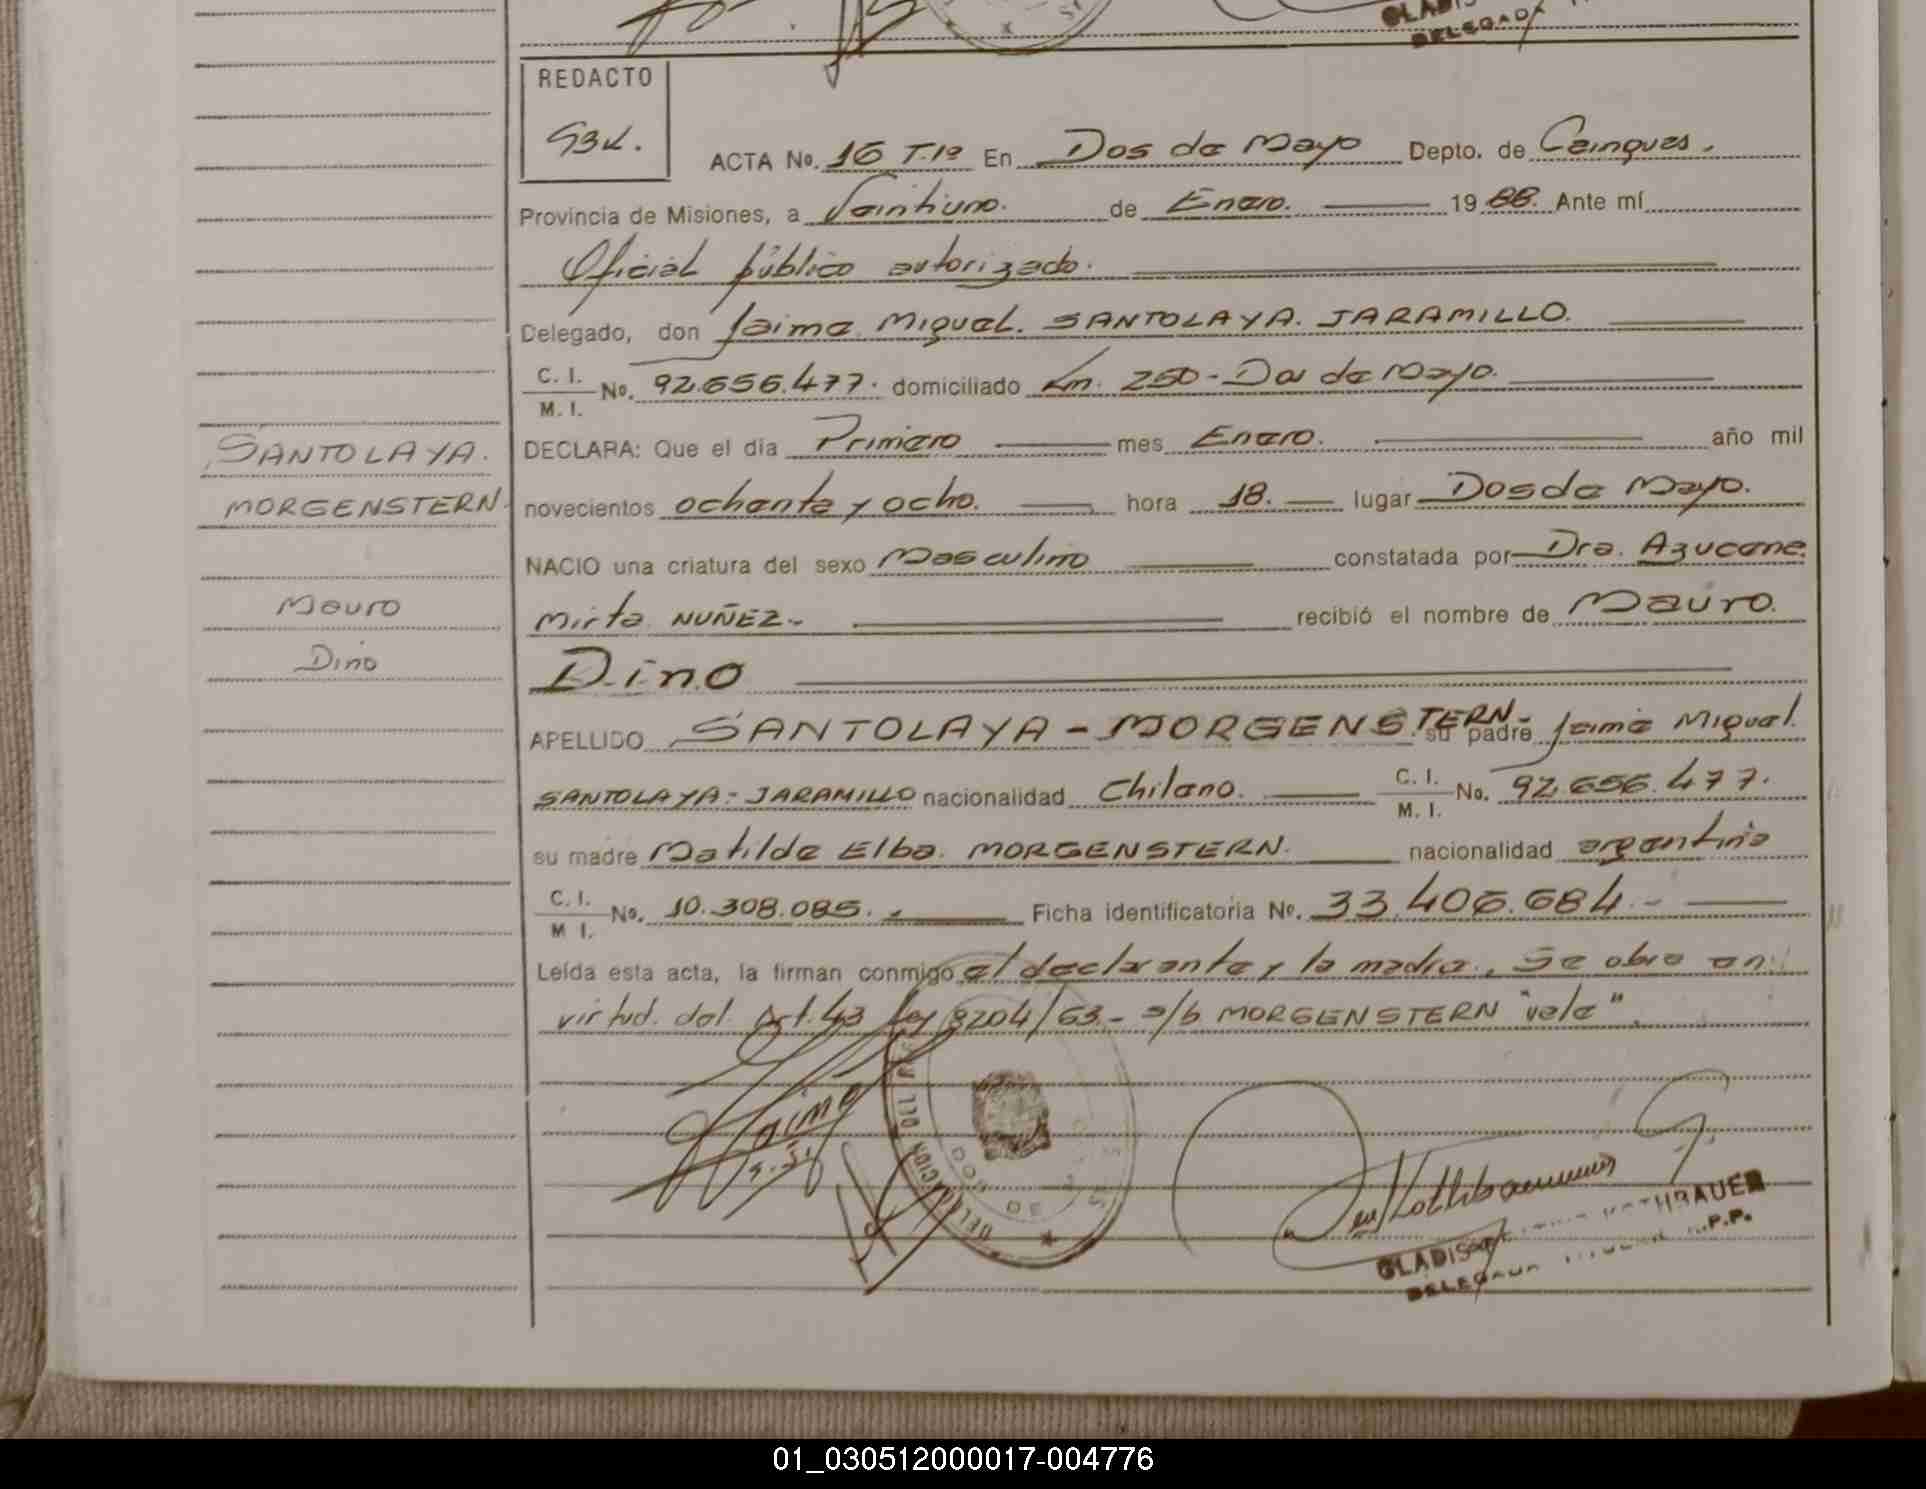 GLADIS
DELEGADA
REDACTO
ACTA No. 16 Tº1º En Dos de Mayo Depto. de Cainguas.
Provincia de Misiones, a Veintiuno. de Enero. 19 88. Ante mí
Oficial público autorizado.
Delegado, don Jaime Miguel. SANTOLAYA. JARAMILLO.
C. I. M. I. No. 92.656.477. domiciliado Km. 250 - Dos de Mayo.
DECLARA: Que el día Primero mes Enero. año mil
SANTOLAYA.
MORGENSTERN.
novecientos ochenta y ocho. hora 18. lugar Dos de Mayo.
NACIO una criatura del sexo Masculino constatada por Dra. Azucena
Mauro
Mirta NUÑEZ.- recibió el nombre de Mauro.
Dino
Dino
APELLIDO SANTOLAYA - MORGENSTERN - su padre Jaime Miguel.
SANTOLAYA - JARAMILLO nacionalidad Chileno. C. I. M. I. No. 92.656.477.
su madre Matilde Elba. MORGENSTERN. nacionalidad argentina
C. I. M I. No. 10.308.085. Ficha identificatoria No. 33.406.684.-
Leída esta acta, la firman conmigo el declarante y la madre. Se obra en
virtud. del. Art. 43 Ley 8204/63.- s/b MORGENSTERN "vale".
Jaime
DELEGACION DEL
DOS DE
GLADIS ROTHBAUER
DELEGADA TITULAR R.P.P.
01_030512000017-004776